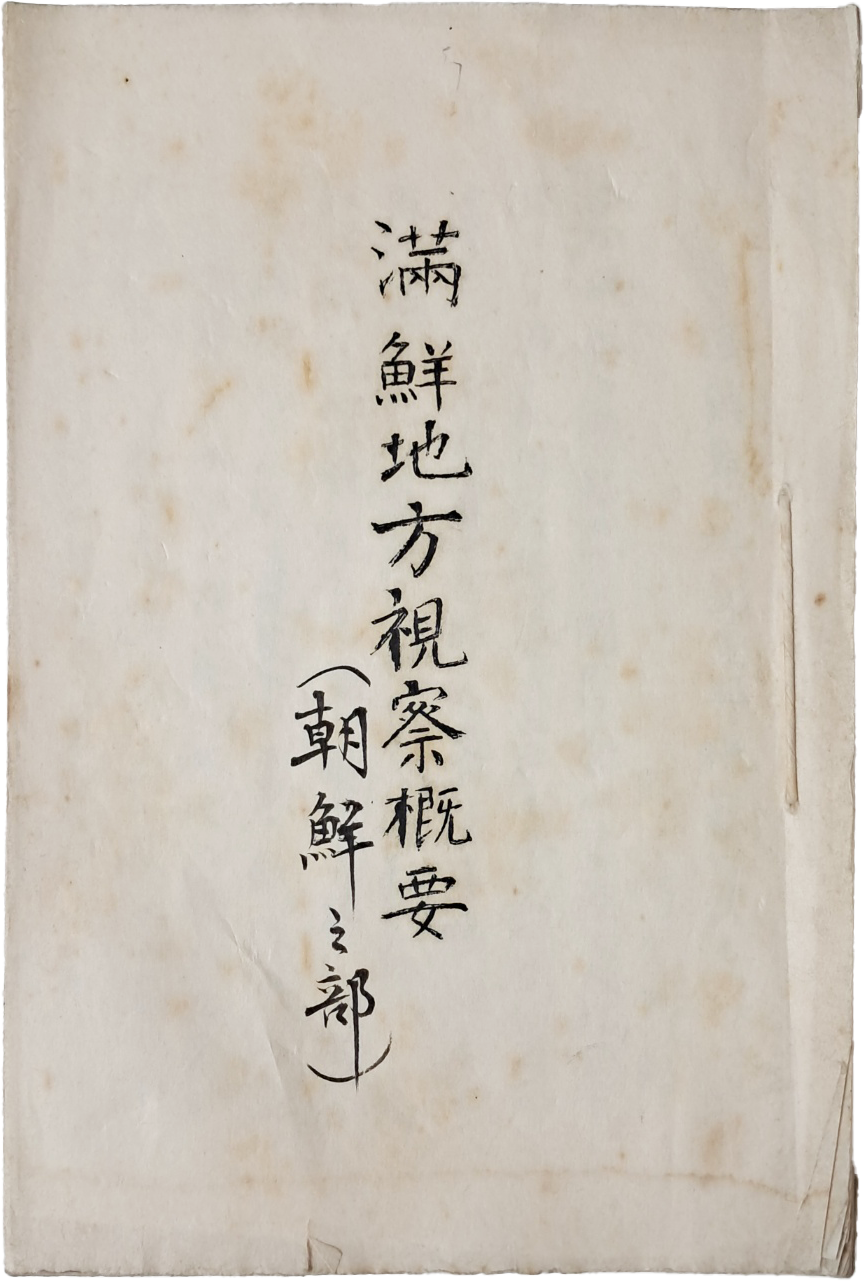 滿鮮地方視察概要
(朝鮮之部)